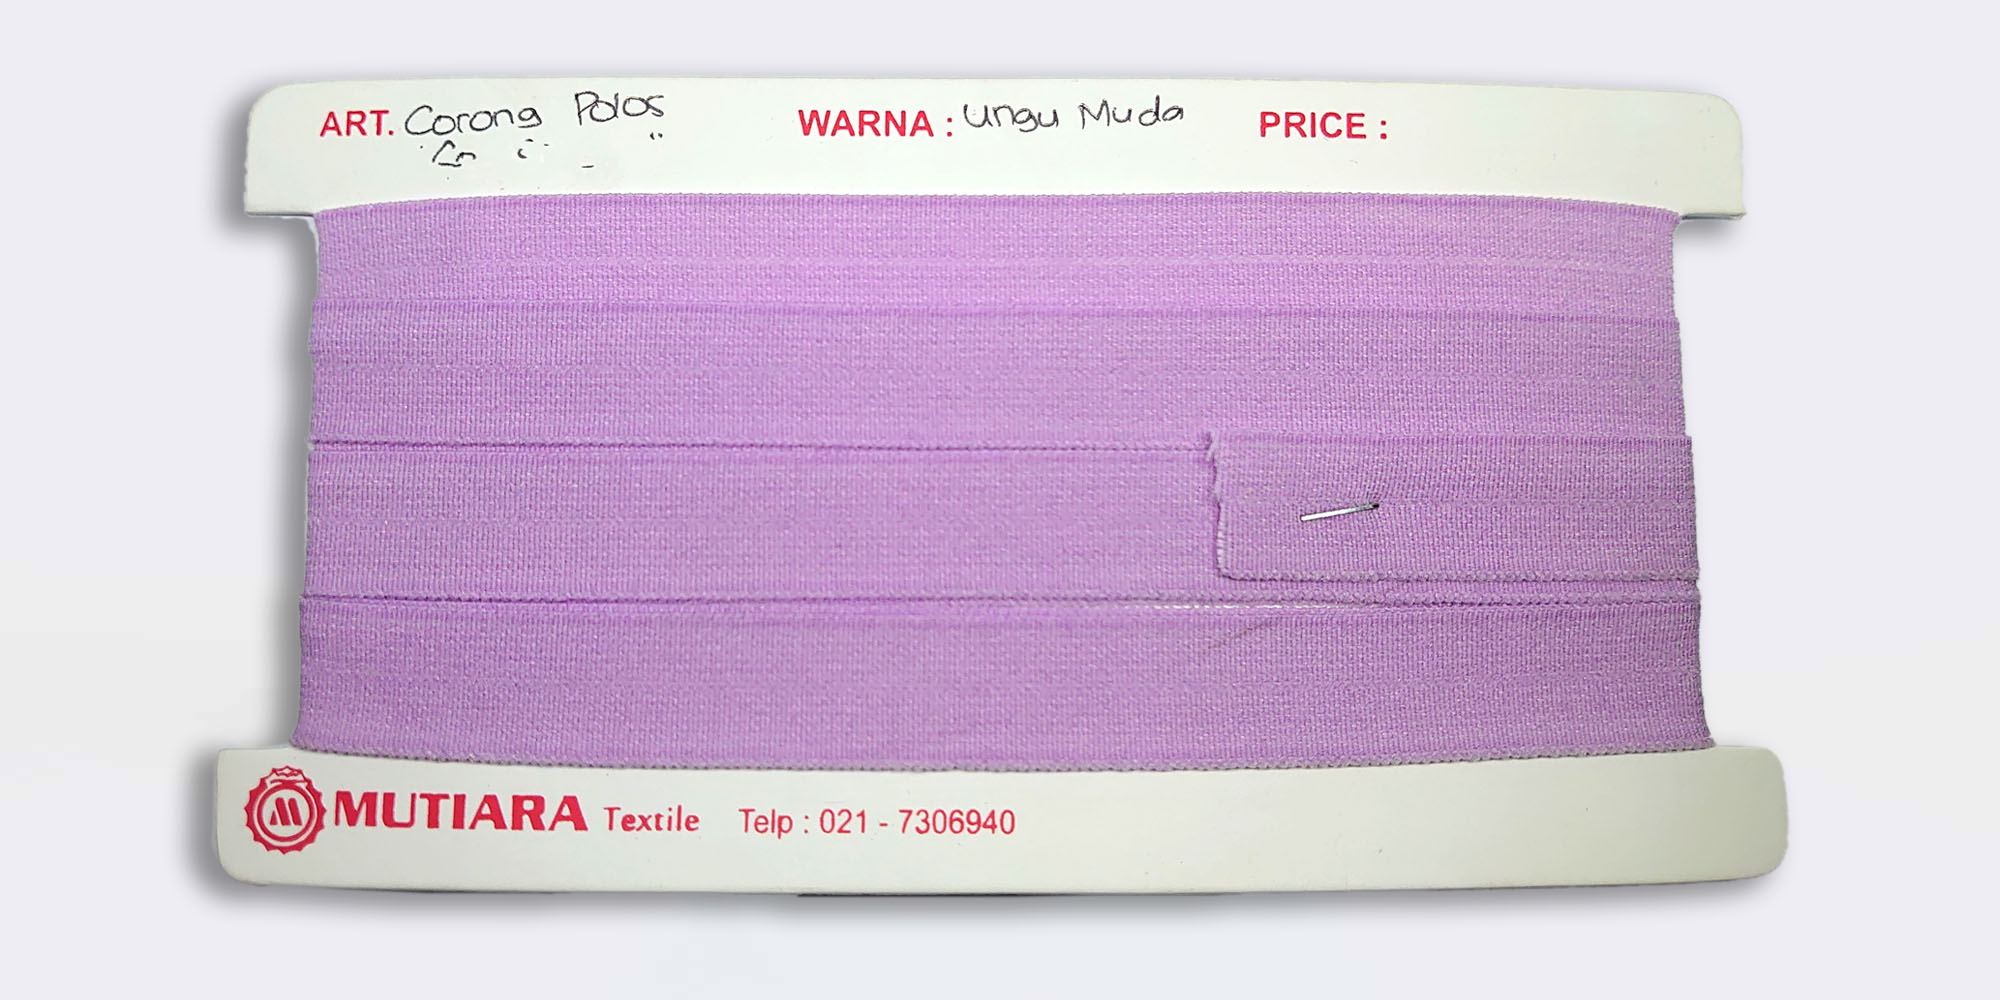 ART. Corong Polos WARNA : Ungu Muda PRICE :
MUTIARA Textile Telp : 021 - 7306940